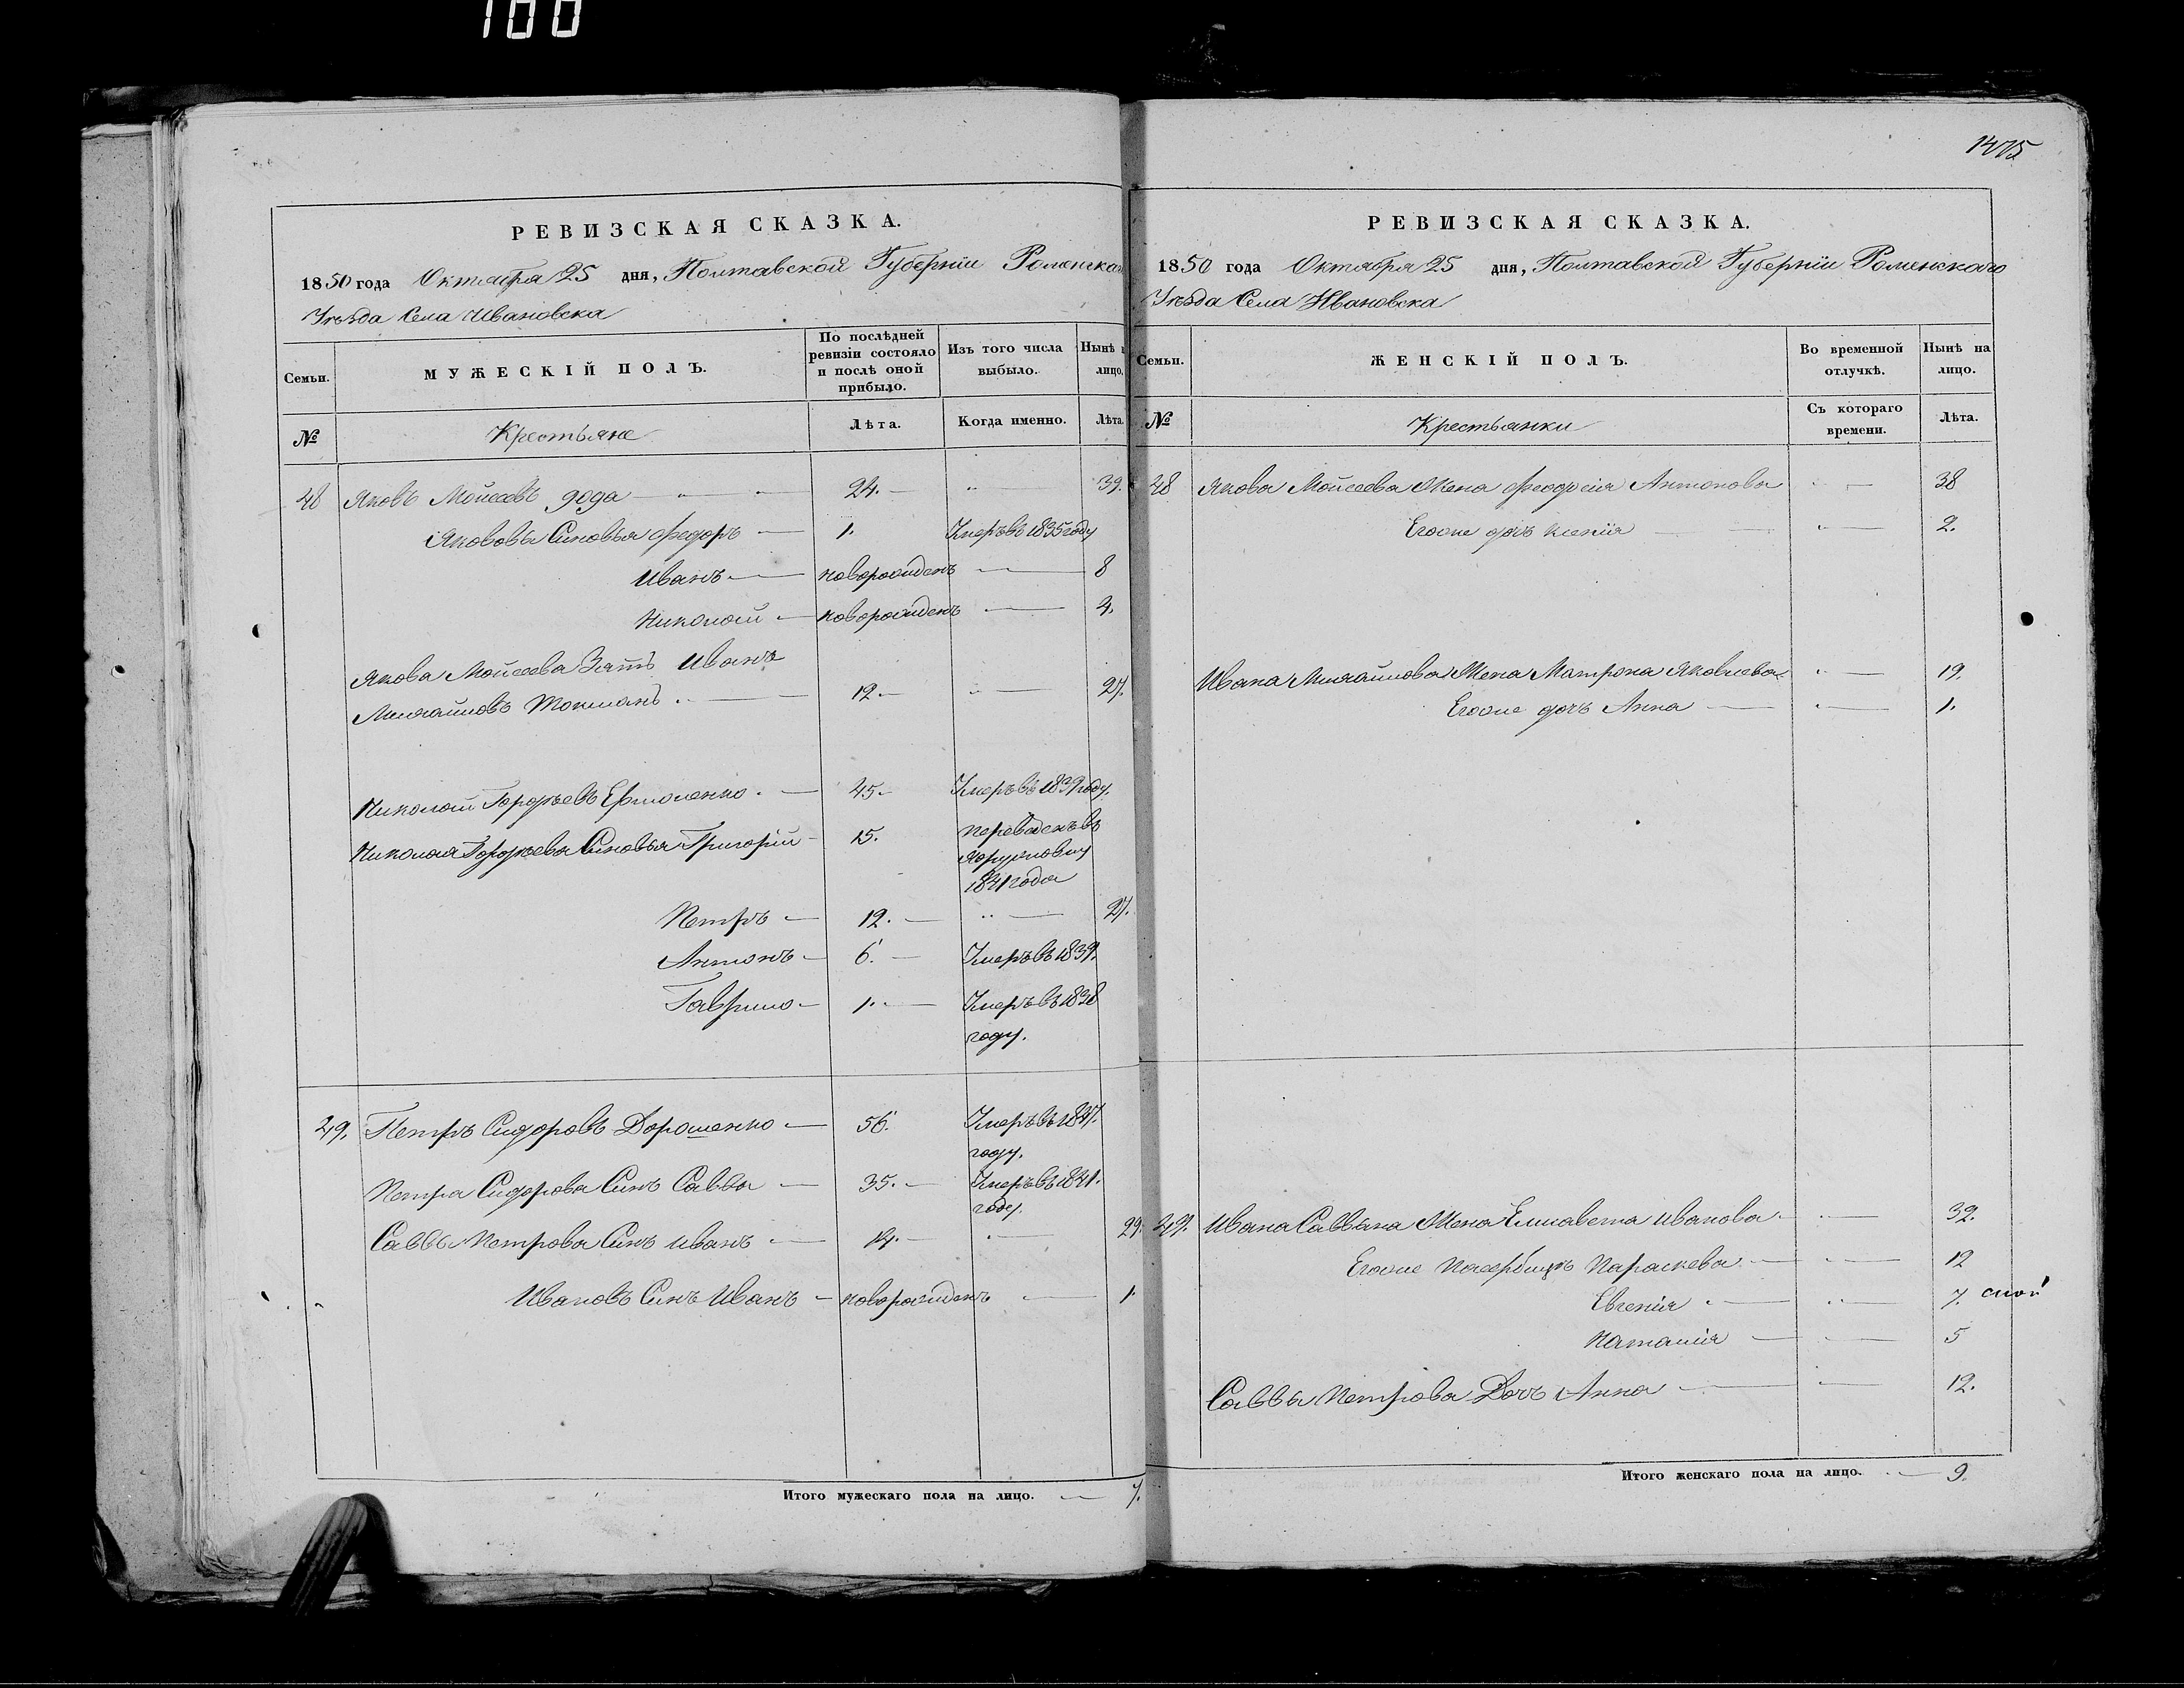 100
1405
РЕВИЗСКАЯ СКАЗКА.
1850 года Октября 25 дня, Полтавской Губерніи Роменскаго
Уѣзда Села Ивановска
Семьи.
МУЖЕСКІЙ ПОЛЪ.
По послѣдней ревизіи состояло и послѣ оной прибыло.
Изъ того числа выбыло.
Нынѣ на лицо.
№
Крестьяне
Лѣта.
Когда именно.
Лѣта.
48 Яковъ Мойсеевъ 24. 39.
Якововы Синовья Федоръ 1. Умеръ въ 1835 году
Иванъ новорожденъ 8
Николай новорожденъ 4.
Якова Мойсеева Зять Иванъ
Михайловъ Токмань 12 27.
Николай Гордѣевъ Ермоленко 45. Умеръ въ 1839 году.
Николая Гордѣева Синовья Григорій 15. переведенъ въ
1841 года
Петръ 12. 27.
Антонъ 6. Умеръ въ 1839.
Гаврило 1. Умеръ въ 1838
году.
49. Петръ Сидоровъ Дорошенко 56. Умеръ въ 1847.
году.
Петра Сидорова Синъ Савва 35. Умеръ въ 1841.
году.
Саввы Петрова Синъ Иванъ 14. 29.
Ивановъ Синъ Иванъ новорожденъ 1.
Итого мужескаго пола на лицо. 7.
РЕВИЗСКАЯ СКАЗКА.
1850 года Октября 25 дня, Полтавской Губерніи Роменскаго
Уѣзда Села Ивановска
Семьи.
ЖЕНСКІЙ ПОЛЪ.
Во временной отлучкѣ.
Нынѣ на лицо.
№
Крестьянки
Съ котораго времени.
Лѣта.
48 Якова Мойсеева Жена Феодосія Антонова 38
Егоже дочь Ксенія 2.
Ивана Михайлова Жена Матрона Яковлева 19.
Егоже дочь Анна 1.
49. Ивана Саввина Жена Елисавета Иванова 32.
Егоже Пасербицѣ Параскева 12
Евгенія 7.
Наталія 5
Саввы Петрова Дочь Анна 12.
Итого женскаго пола на лицо. 9.